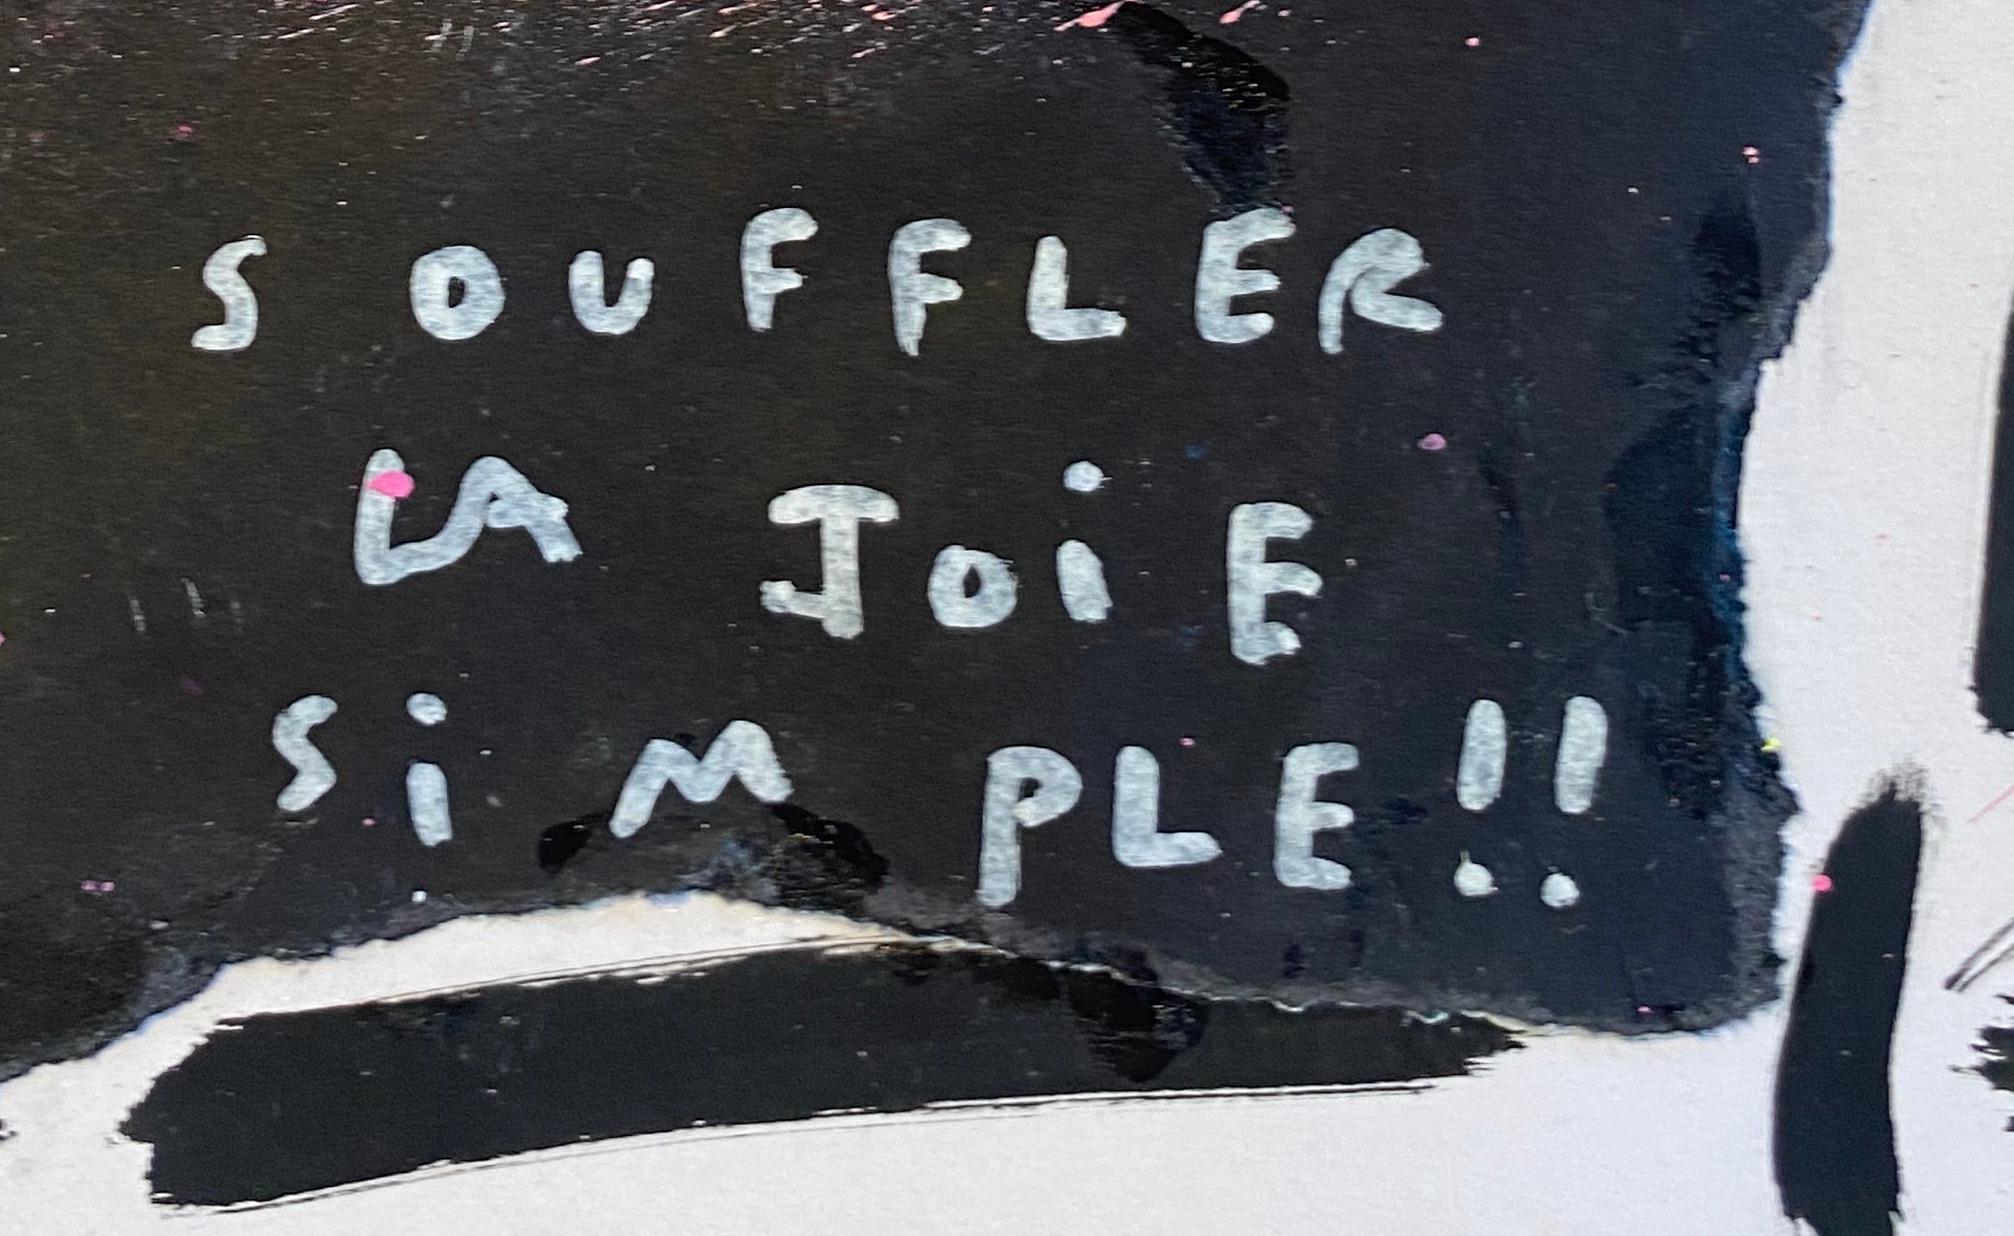 SOUFFLER
LA JOiE
SiMPLE!!